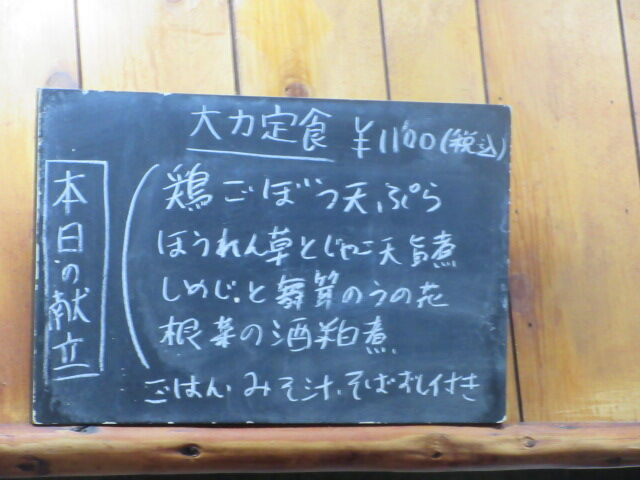 本日の献立
大力定食 ¥1100(税込)
鶏ごぼう天ぷら
ほうれん草とじゃこ天旨煮
しめじと舞茸のうの花
根菜の酒粕煮
ごはん、みそ汁、そばむし付き